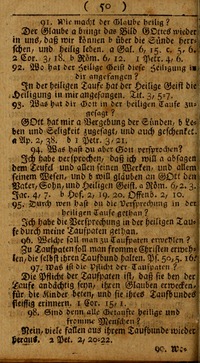 ( 50 )
91. Wie macht der Glaube heilig?
Der Glaube a bringt das Bild GOttes wieder
in uns, daß wir können b über die Sünde herr-
schen, und heilig leben. a Gal. 6, 15. c. 5, 6.
2 Cor. 3, 18. b Röm. 6, 12. 1 Petr. 4, 6.
92. Wo hat der Heilige Geist diese Heiligung in
dir angefangen?
In der heiligen Taufe hat der Heilige Geist die
Heiligung in mir angefangen. Tit. 3, 5. 7.
93. Was hat dir GOtt in der heiligen Taufe zu-
gesagt?
GOtt hat mir a Vergebung der Sünden, b Le-
ben und Seligkeit zugesagt, und auch geschenket.
a Ap. 2, 38. b 1 Petr. 3, 21.
94. Was hast du aber GOtt versprochen?
Ich habe versprochen, daß ich will a absagen
dem Teufel und allen seinen Werken, und allem
seinem Wesen, und b will glauben an GOtt den
Vater, Sohn, und Heiligen Geist. a Röm. 6, 2. 3.
Jac. 4, 7. b Hos. 2, 19. 20. Offenb. 2, 10.
95. Durch wen hast du die Versprechung in der
heiligen Taufe gethan?
Ich habe die Versprechung in der heiligen Tau-
fe durch meine Taufpaten gethan.
96. Welche soll man zu Taufpaten erwehlen?
Zu Taufpaten soll man fromme Christen erweh-
len, die selbst ihren Taufbund halten. Ps. 50, 5. 16.
97. Was ist die Pflicht der Taufpaten?
Die Pflicht der Taufpaten ist, daß sie bey der
Taufe andächtig seyn, ihren Glauben erwecken,
für die Kinder beten, und sie ihres Taufbundes
fleißig erinnern. 1 Cor. 15, 1.
98. Sind denn alle Getaufte heilige und
fromme Menschen?
Nein, viele fallen aus ihrem Taufbunde wieder
heraus. 2 Pet. 2, 20-22.